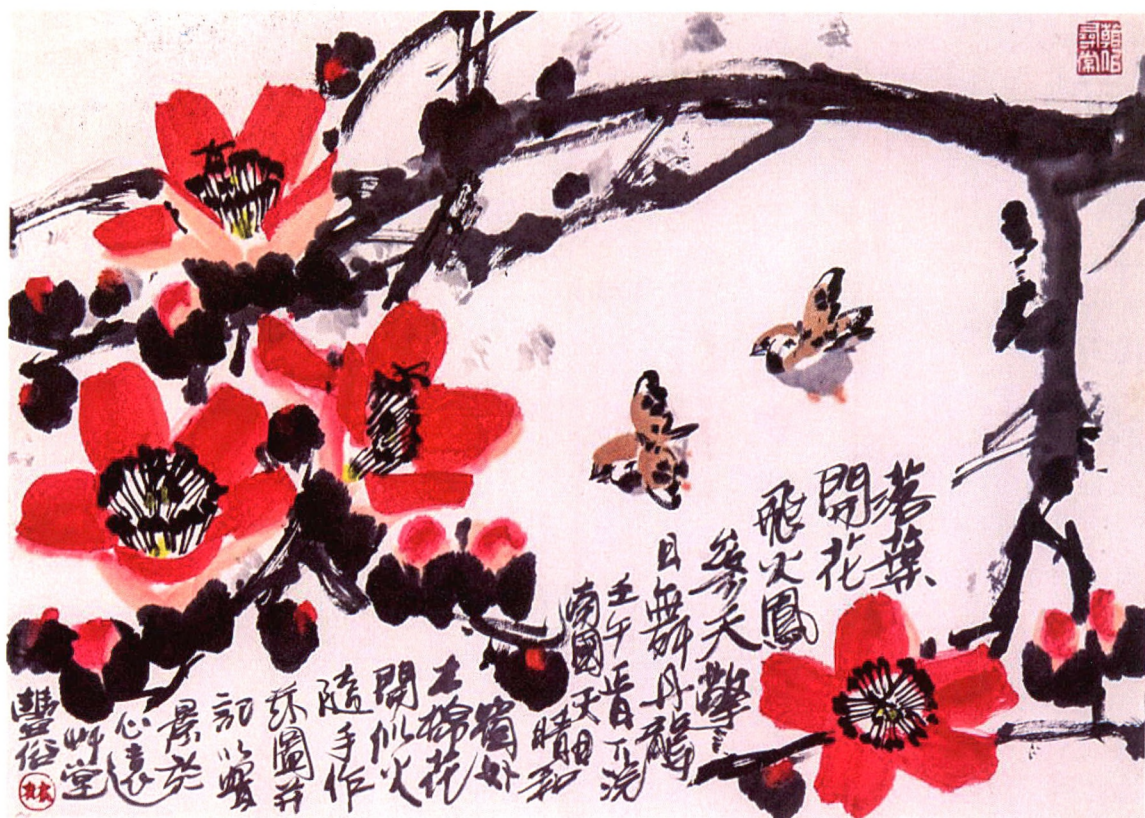 落葉
開花
飛火鳳
參天擎
日舞丹龍
壬午正月下浣
南國天日
晴和
窗外
木棉花
開似火
隨手作
圖并
記以
景於
心遠
艸堂
豐俗